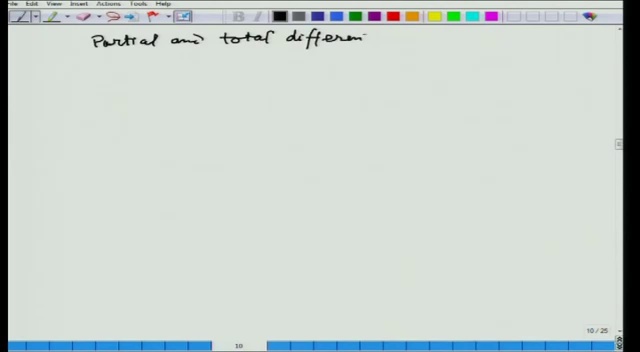 File Edit View Insert Actions Tools Help
B I
Partial and total differen
10 / 25
10